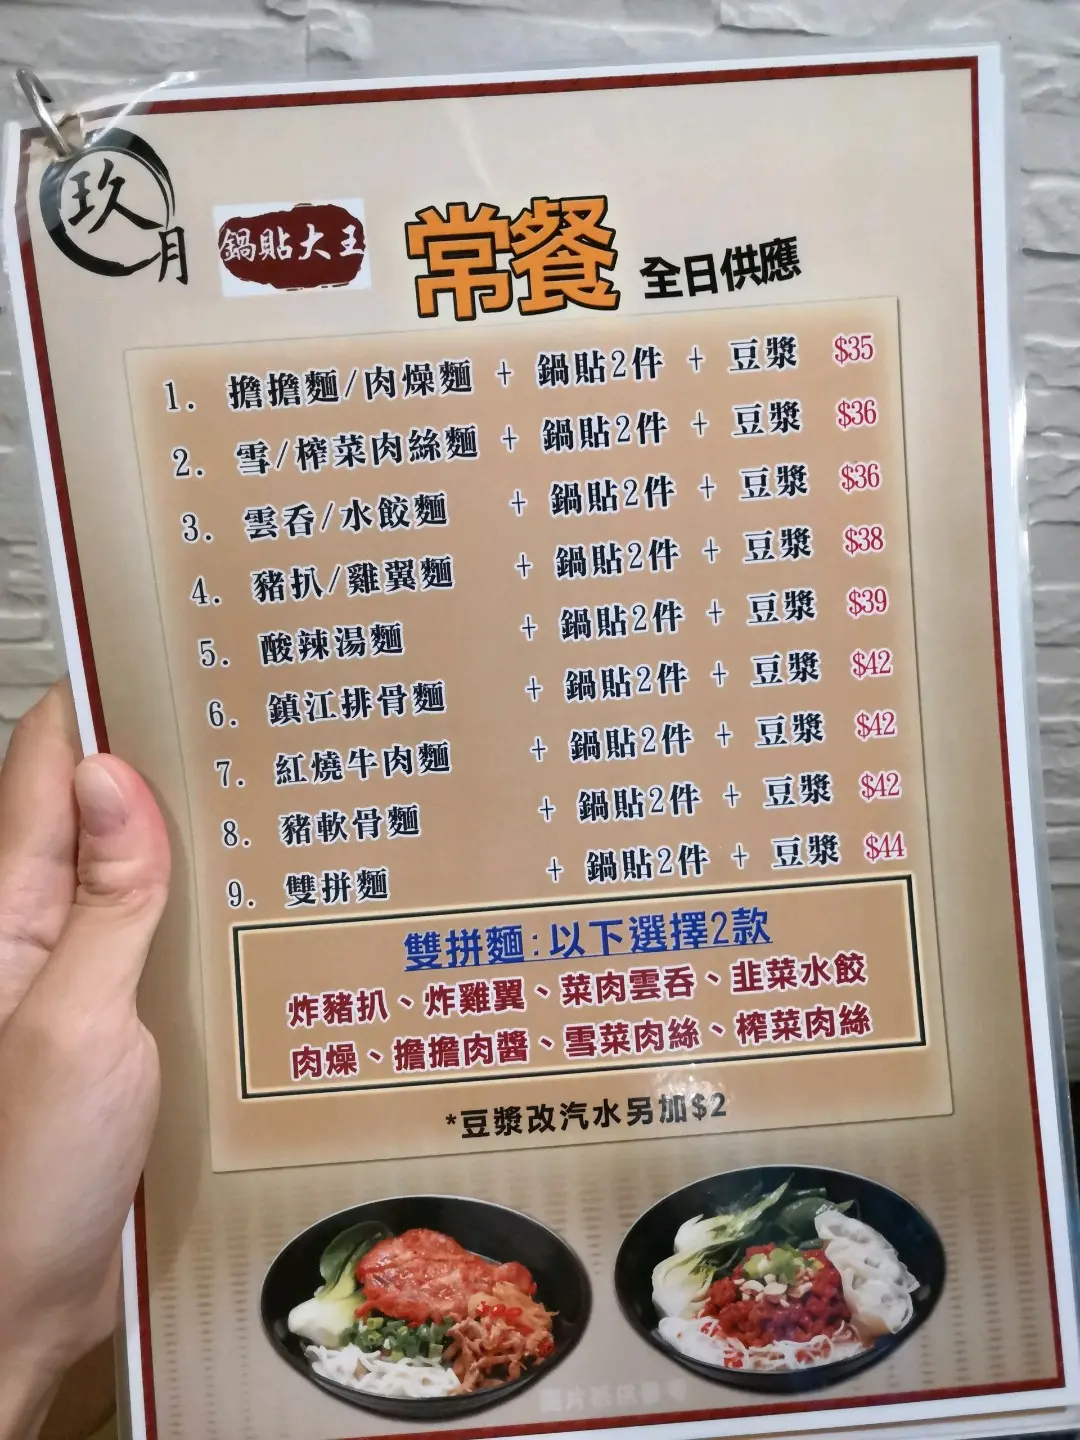 玖月
鍋貼大王
常餐 全日供應
1. 擔擔麵/肉燥麵 + 鍋貼2件 + 豆漿 $35
2. 雪/榨菜肉絲麵 + 鍋貼2件 + 豆漿 $36
3. 雲吞/水餃麵 + 鍋貼2件 + 豆漿 $36
4. 豬扒/雞翼麵 + 鍋貼2件 + 豆漿 $38
5. 酸辣湯麵 + 鍋貼2件 + 豆漿 $39
6. 鎮江排骨麵 + 鍋貼2件 + 豆漿 $42
7. 紅燒牛肉麵 + 鍋貼2件 + 豆漿 $42
8. 豬軟骨麵 + 鍋貼2件 + 豆漿 $42
9. 雙拼麵 + 鍋貼2件 + 豆漿 $44
雙拼麵:以下選擇2款
炸豬扒、炸雞翼、菜肉雲吞、韭菜水餃
肉燥、擔擔肉醬、雪菜肉絲、榨菜肉絲
*豆漿改汽水另加$2